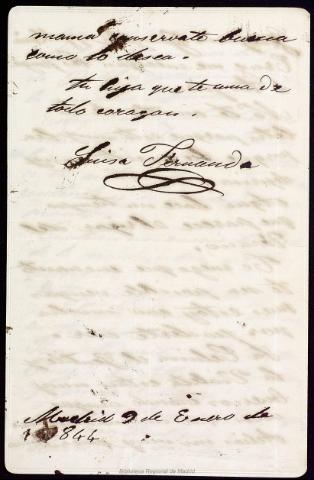 mama conservate buena
como lo desea.
tu hija que te ama de
todo corazon.
Luisa Fernanda
Madrid 9 de Enero de
1844
Biblioteca Regional de Madrid